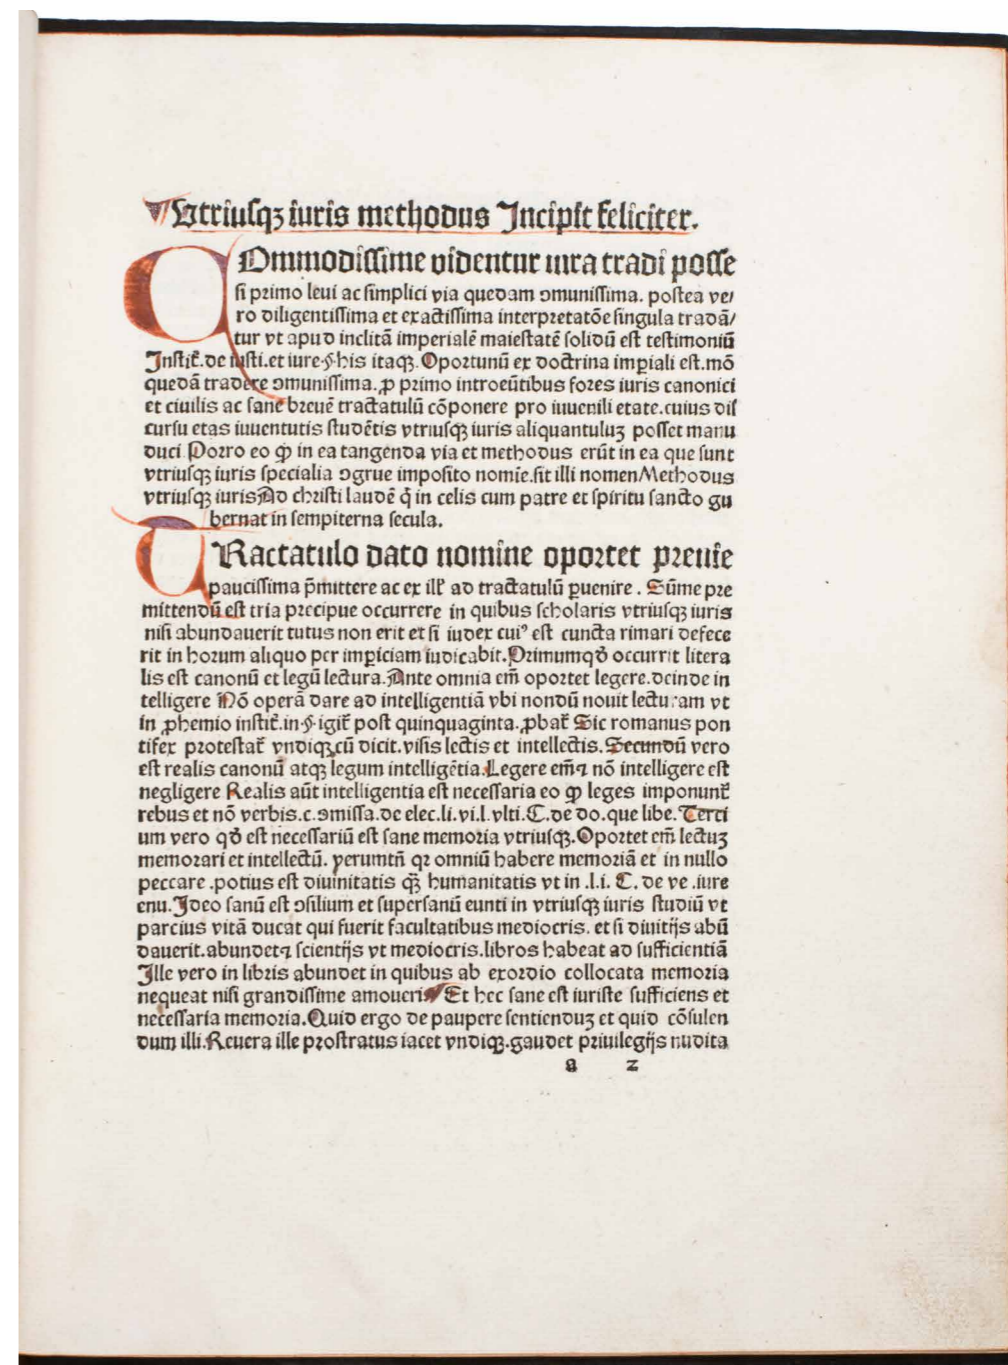 Utriusqꝫ iuris methodus Incipit feliciter.
COmmodissime videntur iura tradi posse
si primo leui ac simplici via quedam ɔmunissima. postea ve/
ro diligentissima et exactissima interpretatōe singula tradā/
tur vt apud inclitā imperialē maiestatē solidū est testimoniū
Instit̄. de iusti. et iure. §. his itaqꝫ. Oportunū ex doctrina imꝑiali est. mō
quedā tradere ɔmunissima. ꝓ primo introeūtibus fores iuris canonici
et ciuilis ac sane breuē tractatulū cōponere pro iuuenili etate. cuius dis
cursu etas iuuentutis studētis vtriusqꝫ iuris aliquantuluꝫ posset manu
duci Porro eo ꝙ in ea tangenda via et methodus erūt in ea que sunt
vtriusqꝫ iuris specialia ɔgrue imposito nomīe. sit illi nomen Methodus
vtriusqꝫ iuris Ad christi laudē q̄ in celis cum patre et spiritu sancto gu
bernat in sempiterna secula.
TRactatulo dato nomine oportet preuie
paucissima p̄mittere ac ex ill̄ ad tractatulū ꝑuenire. Sūme pre
mittendū est tria precipue occurrere in quibus scholaris vtriusqꝫ iuris
nisi abundauerit tutus non erit et si iudex cuiꝰ est cuncta rimari defece
rit in horum aliquo per imꝑiciam iudicabit. Primumqꝫ occurrit litera
lis est canonū et legū lectura. Ante omnia em̄ oportet legere. deinde in
telligere Nō operā dare ad intelligentiā vbi nondū nouit lecturam vt
in ꝓhemio instit̄. in §. igit̄ post quinquaginta. ꝓbat̄ Sic romanus pon
tifex protestat̄ vndiqꝫ cū dicit. visis lectis et intellectis. Secundū vero
est realis canonū atqꝫ legum intelligētia. Legere em̄ ⁊ nō intelligere est
negligere Realis aūt intelligentia est necessaria eo ꝙ leges imponunt̄
rebus et nō verbis. c. ɔmissa. de elec. li. vi. l. vlti. C. de do. que libe. Terci
um vero qd̄ est necessariū est sane memoria vtriusqꝫ. Oportet em̄ lectuꝫ
memorari et intellectū. verumtn̄ qꝛ omniū habere memoriā et in nullo
peccare. potius est diuinitatis qꝫ̄ humanitatis vt in .l. i. C. de ve. iure
enu. Ideo sanū est ɔsilium et supersanū eunti in vtriusqꝫ iuris studiū vt
parcius vitā ducat qui fuerit facultatibus mediocris. et si diuitijs abū
dauerit. abundet ⁊ scientijs vt mediocris. libros habeat ad sufficientiā
Ille vero in libris abundet in quibus ab exordio collocata memoria
nequeat nisi grandissime amoueri Et hec sane est iuriste sufficiens et
necessaria memoria. Quid ergo de paupere sentienduꝫ et quid cōsulen
dum illi. Reuera ille prostratus iacet vndiqꝫ. gaudet priuilegijs nudita
a 2